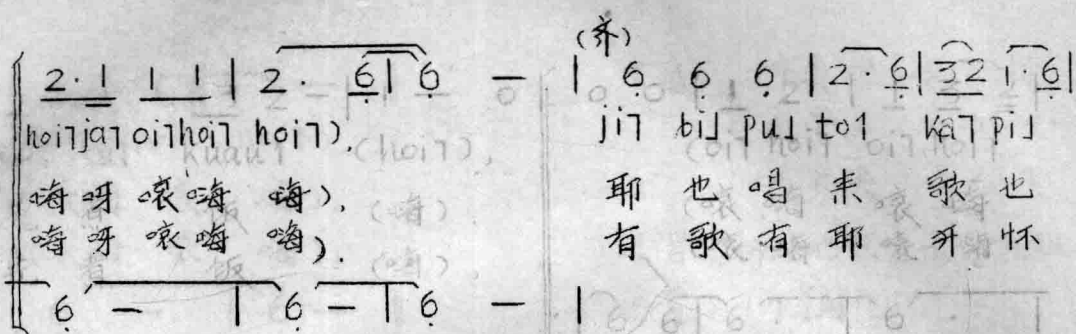 (齐)
2·1 1 1 | 2· 6 | 6 — | 6 6 6 | 2·6 | 32 1·6 |
hoi˥ja˥ oi˥hoi˥ hoi˥), ji˥ bi˩ pu˩ to˦ ka˥ pi˩
嗨呀哀嗨 嗨), 耶 也 唱 来 歌 也
嗨呀哀嗨 嗨). 有 歌 有 耶 开 怀
6 — | 6 — | 6 — |